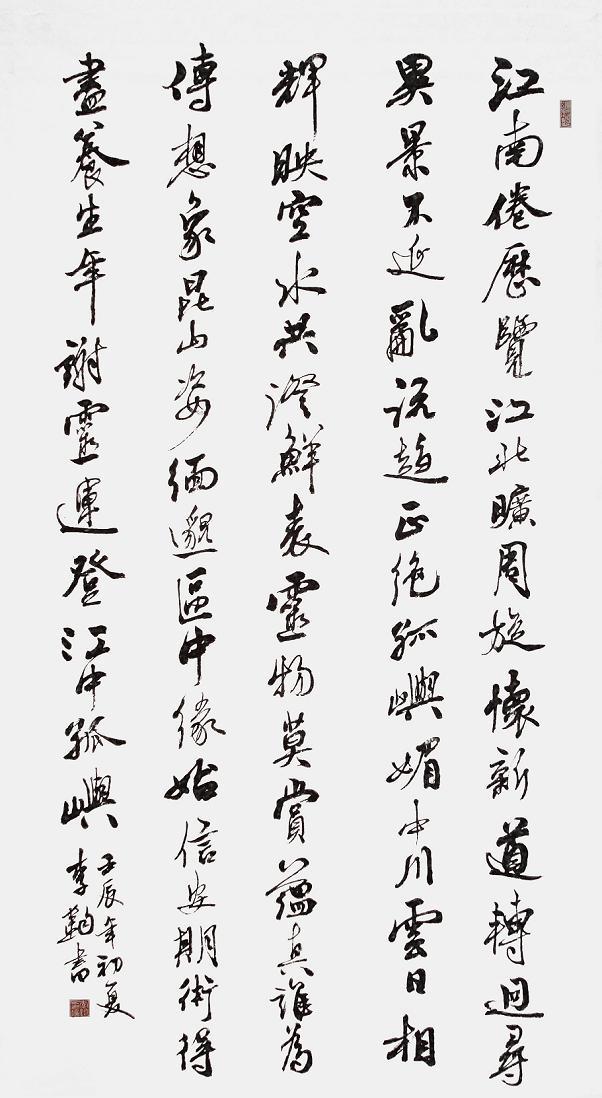 江南倦歷覽江北曠周旋懷新道轉迥尋
異景不延亂流趨正絕孤嶼媚中川雲日相
輝映空水共澄鮮表靈物莫賞蘊真誰為
傳想象昆山姿緬邈區中緣始信安期術得
盡養生年謝靈運登江中孤嶼
壬辰年初夏
李書